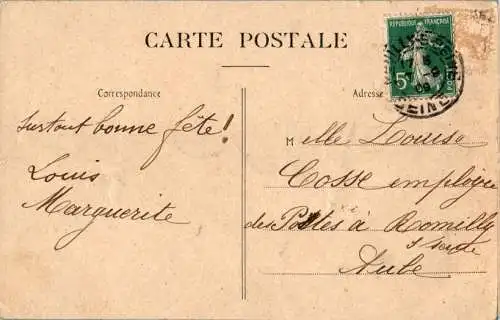 CARTE POSTALE
RÉPUBLIQUE FRANÇAISE
5c
POSTES
SEINE
09
Correspondance
Adresse
Surtout bonne fête!
Louis
Marguerite
Melle Louise
Cosse employée
des Postes à Romilly
s/ Seine
Aube